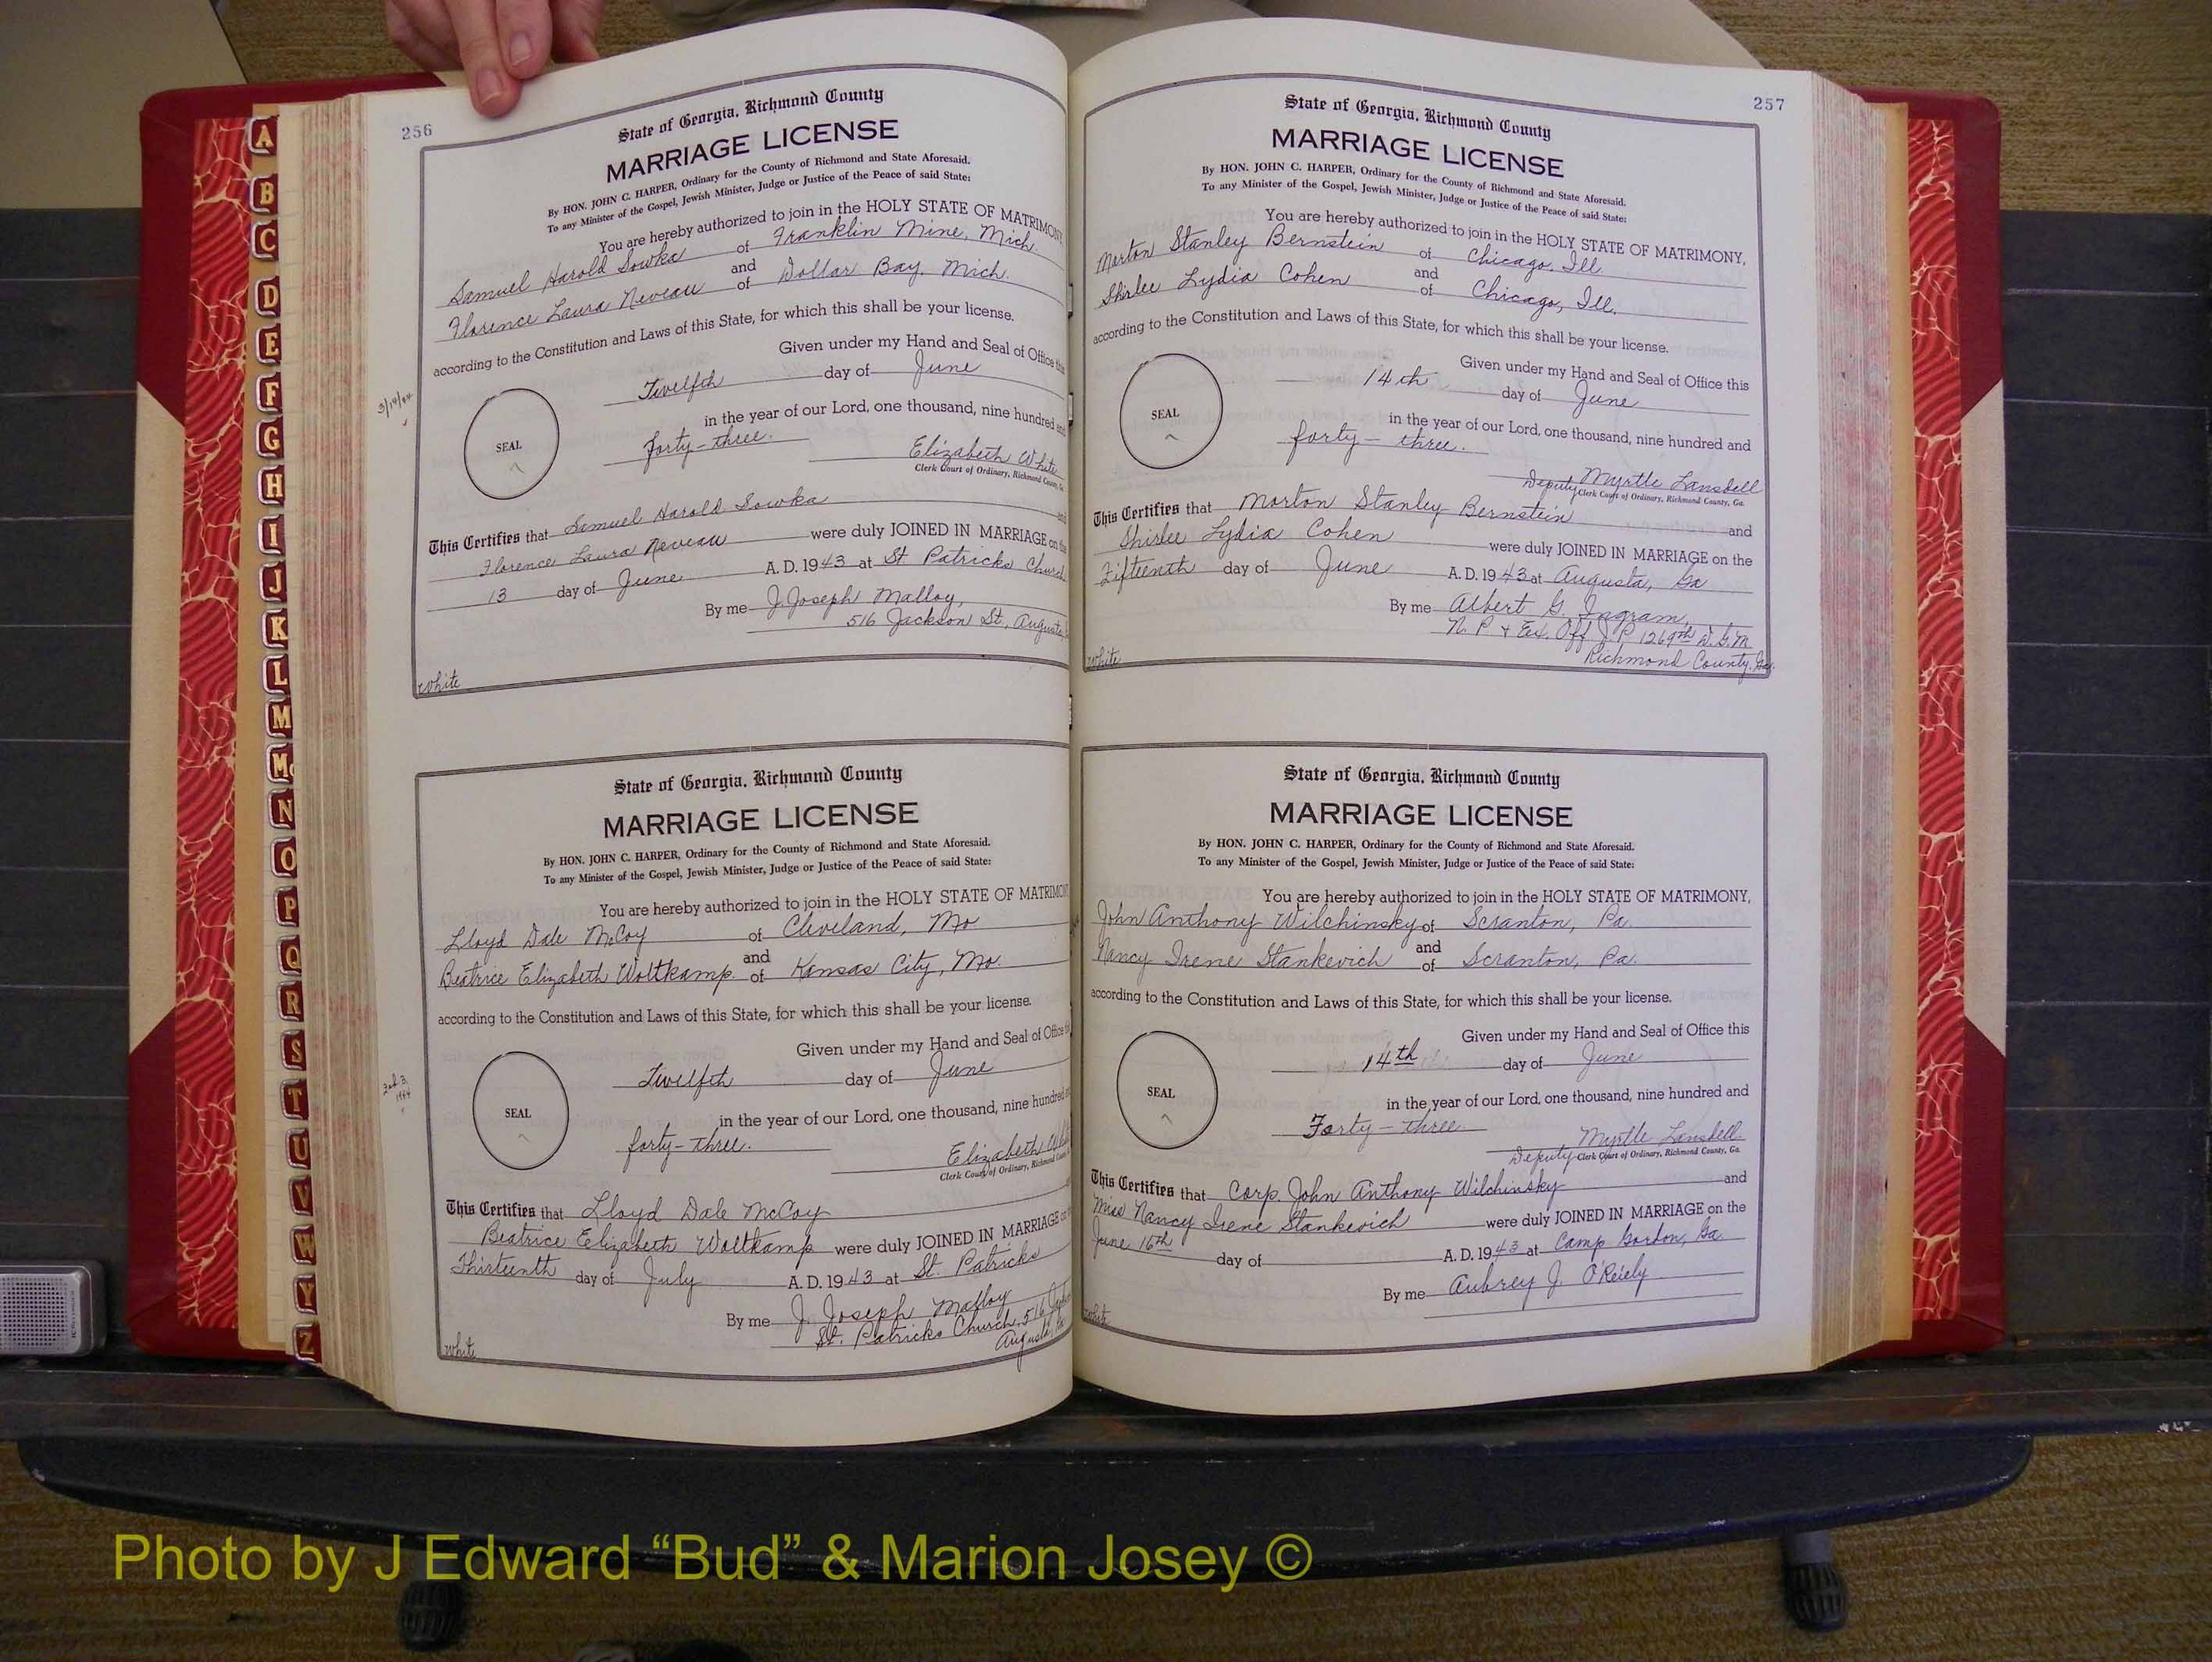 256
State of Georgia, Richmond County
MARRIAGE LICENSE
By HON. JOHN C. HARPER, Ordinary for the County of Richmond and State Aforesaid.
To any Minister of the Gospel, Jewish Minister, Judge or Justice of the Peace of said State:
You are hereby authorized to join in the HOLY STATE OF MATRIMONY,
Samuel Harold Sowka of Franklin Mine, Mich.
and
Florence Laura Neveau of Dollar Bay, Mich.
according to the Constitution and Laws of this State, for which this shall be your license.
Given under my Hand and Seal of Office this
Twelfth day of June
in the year of our Lord, one thousand, nine hundred and
forty-three.
SEAL
Elizabeth White
Clerk Court of Ordinary, Richmond County, Ga.
This Certifies that Samuel Harold Sowka and
Florence Laura Neveau were duly JOINED IN MARRIAGE on the
13 day of June A. D. 1943 at St Patricks Church
By me J. Joseph Malloy,
516 Jackson St., Augusta
White
3/14/44
State of Georgia, Richmond County
MARRIAGE LICENSE
By HON. JOHN C. HARPER, Ordinary for the County of Richmond and State Aforesaid.
To any Minister of the Gospel, Jewish Minister, Judge or Justice of the Peace of said State:
You are hereby authorized to join in the HOLY STATE OF MATRIMONY
Lloyd Dale McCoy of Cleveland, Mo
and
Beatrice Elizabeth Woltkamp of Kansas City, Mo.
according to the Constitution and Laws of this State, for which this shall be your license.
Given under my Hand and Seal of Office
Twelfth day of June
in the year of our Lord, one thousand, nine hundred
forty-three.
SEAL
Elizabeth
Clerk Court of Ordinary, Richmond
This Certifies that Lloyd Dale McCoy
Beatrice Elizabeth Woltkamp were duly JOINED IN MARRIAGE on
Thirteenth day of July A. D. 1943 at St. Patricks
By me J. Joseph Malloy
St. Patricks Church, 516
Augusta,
White
1944
257
State of Georgia, Richmond County
MARRIAGE LICENSE
By HON. JOHN C. HARPER, Ordinary for the County of Richmond and State Aforesaid.
To any Minister of the Gospel, Jewish Minister, Judge or Justice of the Peace of said State:
You are hereby authorized to join in the HOLY STATE OF MATRIMONY,
Morton Stanley Bernstein of Chicago, Ill.
and
Shirlee Lydia Cohen of Chicago, Ill.
according to the Constitution and Laws of this State, for which this shall be your license.
Given under my Hand and Seal of Office this
14th day of June
in the year of our Lord, one thousand, nine hundred and
forty-three.
SEAL
Myrtle Lansdell
Deputy Clerk Court of Ordinary, Richmond County, Ga.
This Certifies that Morton Stanley Bernstein and
Shirlee Lydia Cohen were duly JOINED IN MARRIAGE on the
Fifteenth day of June A. D. 1943 at Augusta, Ga
By me Albert G. Ingram,
N. P & Ex. Off J. P. 1269th D. G. M.
Richmond County, Ga.
White
State of Georgia, Richmond County
MARRIAGE LICENSE
By HON. JOHN C. HARPER, Ordinary for the County of Richmond and State Aforesaid.
To any Minister of the Gospel, Jewish Minister, Judge or Justice of the Peace of said State:
You are hereby authorized to join in the HOLY STATE OF MATRIMONY,
John Anthony Wilchinsky of Scranton, Pa.
and
Nancy Irene Stankevich of Scranton, Pa.
according to the Constitution and Laws of this State, for which this shall be your license.
Given under my Hand and Seal of Office this
14th day of June
in the year of our Lord, one thousand, nine hundred and
Forty-three
SEAL
Myrtle Lansdell
Deputy Clerk Court of Ordinary, Richmond County, Ga.
This Certifies that Corp. John Anthony Wilchinsky and
Miss Nancy Irene Stankevich were duly JOINED IN MARRIAGE on the
June 16th day of A. D. 1943 at Camp Gordon, Ga.
By me Aubrey J. O'Reiely
White
A
B
C
D
E
F
G
H
I
J
K
L
M
Mc
N
O
P
Q
R
S
T
U
V
W
Y
Z
Photo by J Edward “Bud” & Marion Josey ©